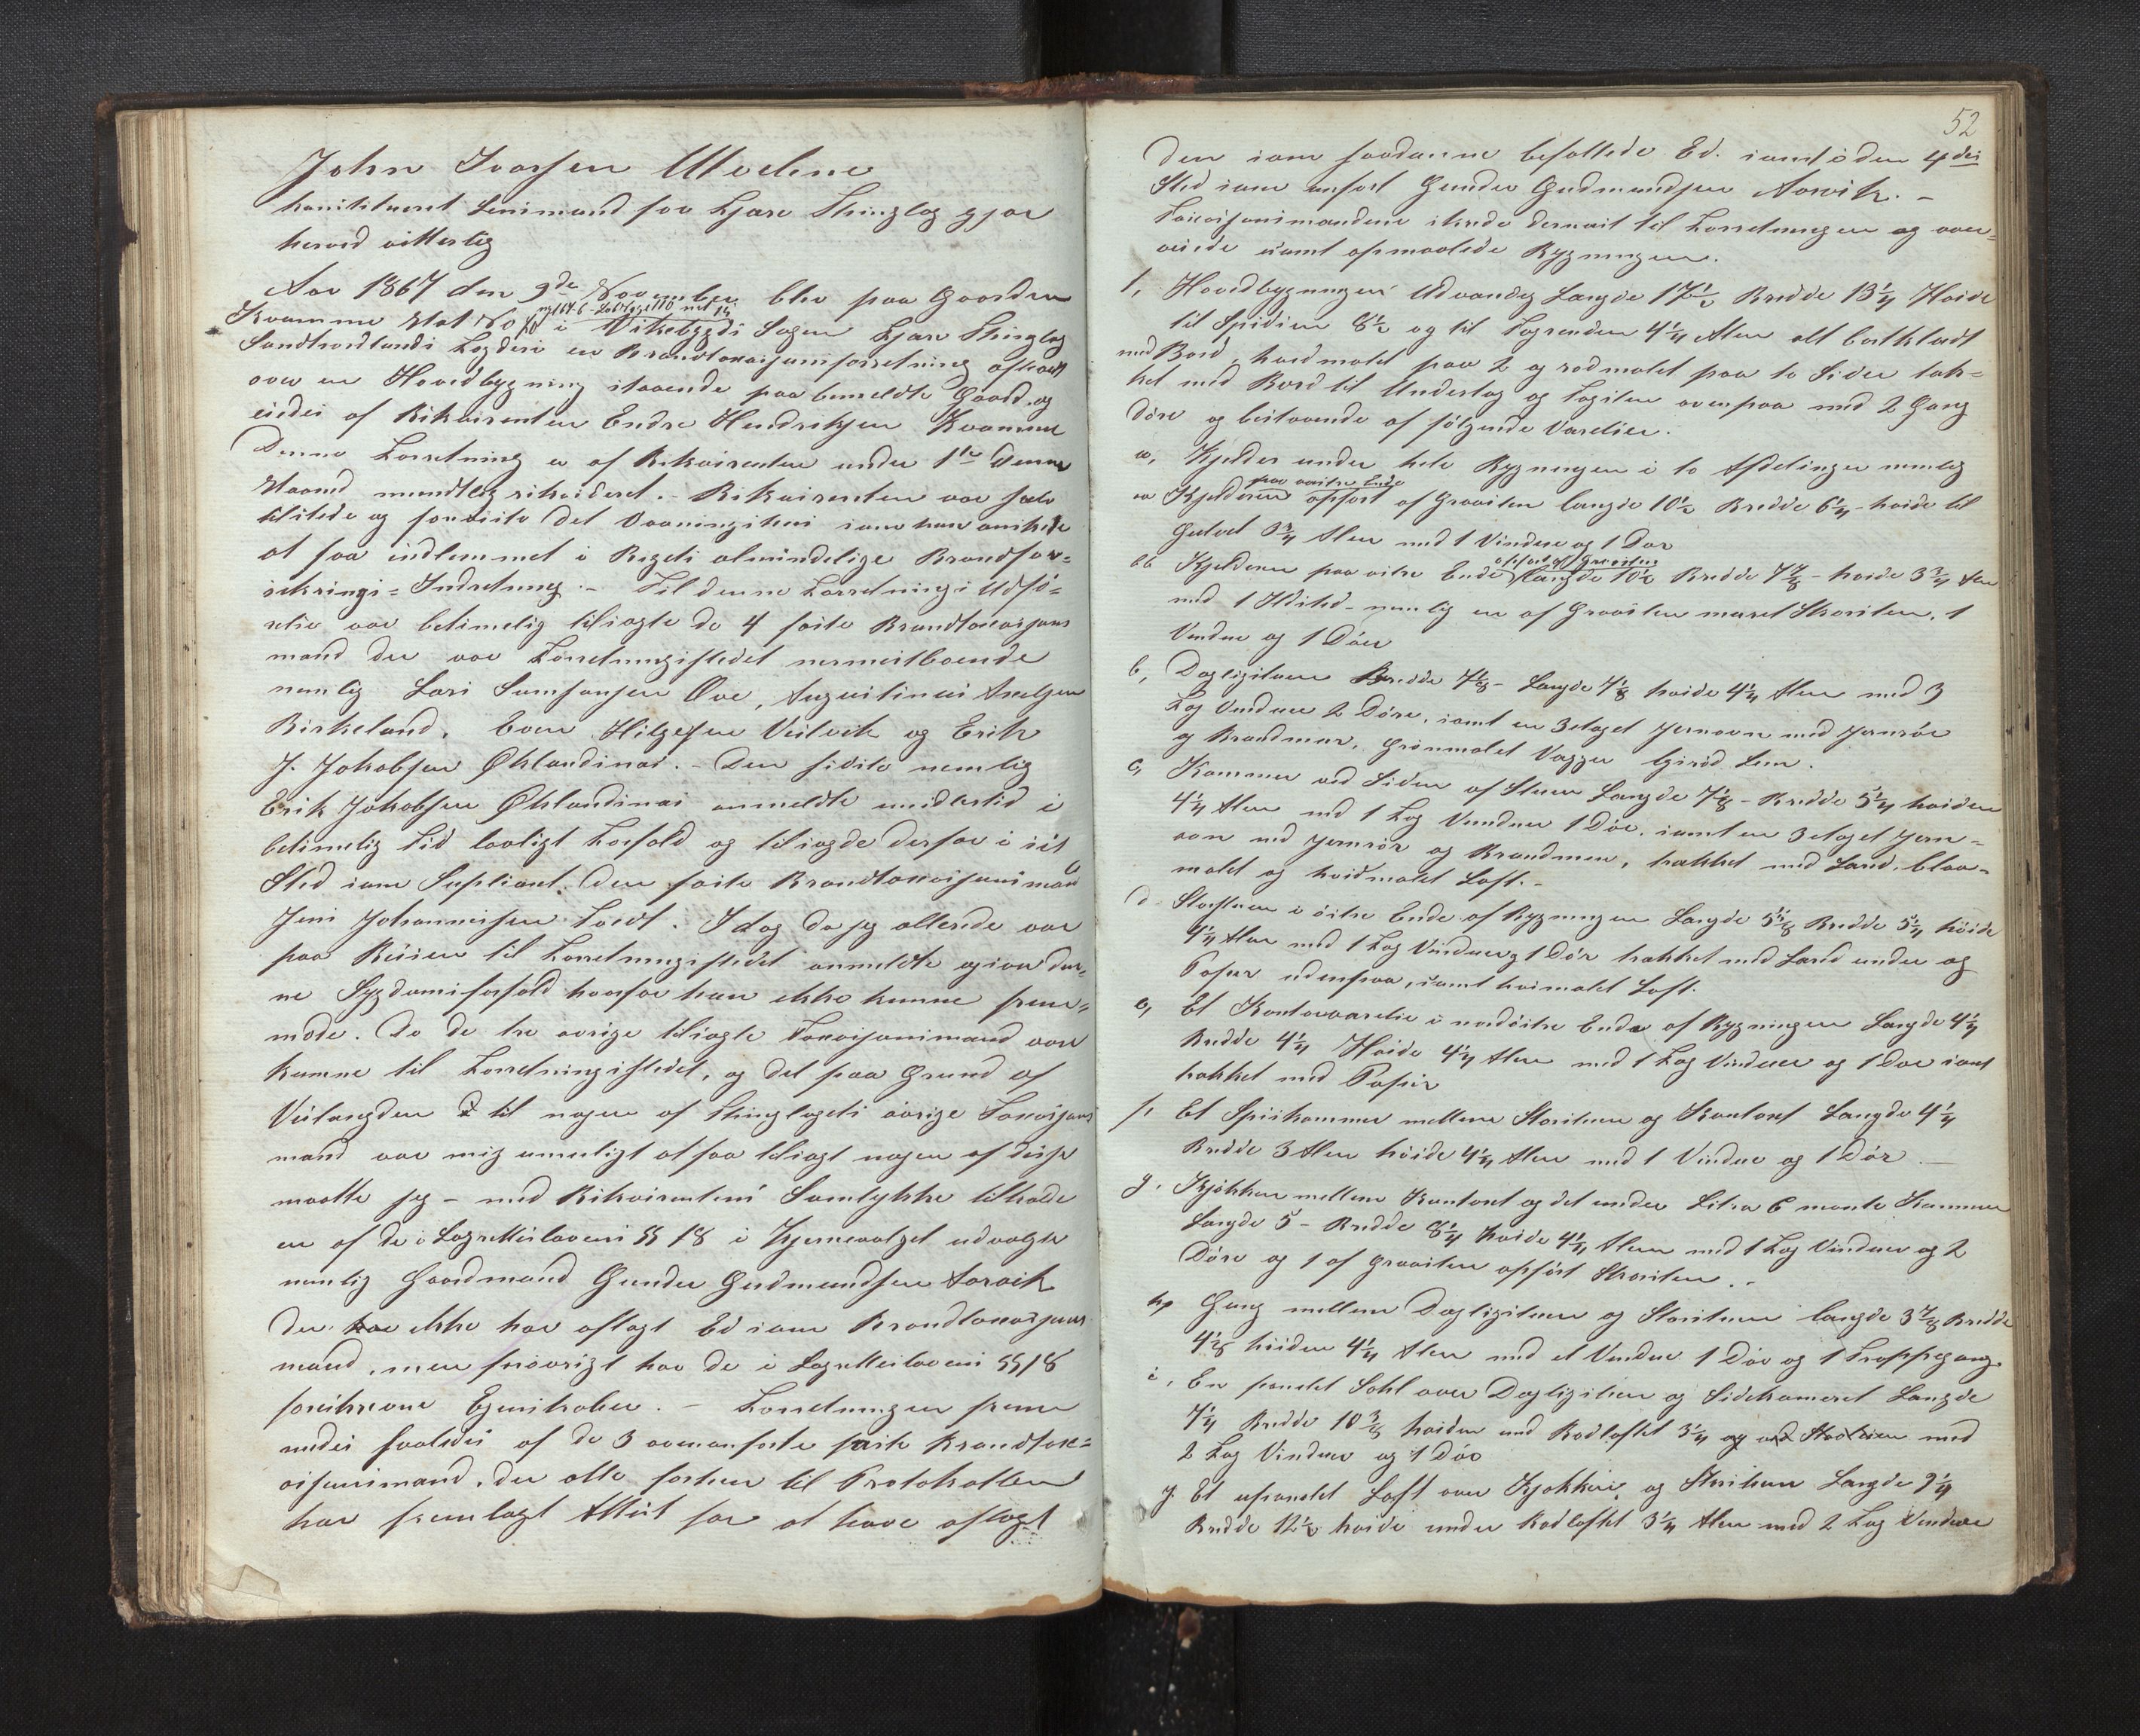 John Ivarsen Utvelene
konstitueret Lensmand for Fjære Thinglag gjør
herved vitterlig
Aar 1867 den 9de November blev paa Gaarden
Kvamme Mat No i Vikebygds Sogn Fjære Thinglag
Søndhordlands Fogderi en Brandtaxasjonsforretning afholdt
over en Hovedbygning staaende paa bemeldte Gaard og
eiedes af Rekvirenten Endre Hendriksen Kvamme
Denne Forretning er af Rekvirenten under 1ste denne
Maaned mundtlig rekvideret. - Rekvirenten var selv
tilstede og foreviste det Vaaningshus som han ønskede
at faa indlemmet i Rigets almindelige Brandfor-
sikrings-Indretning. - Til denne Forretnings Udfø-
relse var betimelig tilsagte de 4 faste Brandtaxasjons
mænd der var Forretningsstedet nærmestboende
nemlig Lars Samsonsen Øve, Augustinus Axelsen
Birkeland, Sven Helgesen Veilvik og Erik
J. Jakobsen Øklandsnæs. - Den sidste nemlig
Erik Jakobsen Øklandsnæs anmeldte imidlertid i
betimelig Tid lovligt Forfald og tilsagde derfor i sit
Sted som Supliant den faste Brandtaxasjonsmand
Jens Johannessen Tveit. I dag da jeg allerede var
paa Reisen til Forretningsstedet anmeldte ogsaa den-
ne Sygdomsforfald hvorfor han ikke kunne frem-
møde. Da de tre øvrige tilsagte Taxasjonsmænd var
komne til Forretningsstedet, og det paa Grund af
Veilængden til nogen af Thinglagets øvrige Taxasjons
mænd var mig umuligt at faa tilsagt nogen af disse
maatte jeg - med Rekvirentens Samtykke tilkalde
en af de i Lagrettesloven §§ 18 i Hjemvalget udvalgte
nemlig Gaardmand Gunder Gudmundsen Aarvik
der ikke har aflagt Ed som Brandtaxasjons
mand, men forøvrigt har de i Lagrettesloven §§ 18
foreskrevne Egenskaber. - Forretningen frem
medes saaledes af de 3 ovenanførte faste Brandtax-
asjonsmænd, der alle forhen til Protokollen
har fremlagt Attest for at have aflagt
52
den som saadanne befallede Ed. samt i den 4des
Sted som anført Gunder Gudmundsen Aarvik. -
Taxasjonsmændene skrede dernæst til Forretningen og over-
veiede samt opmaalede Bygningen.
1, Hovedbygningen Udvendig Længde 17½ Bredde 13¼ Høide
til Spidsen 8½ og til Tagrenden 4¼ Alen alt bordklædt
med Bord, hvidmalet paa 2 og rødmalet paa to Sider tæk-
ket med Bord til Underlag og Tagsten ovenpaa med 2 Gang
døre og bestaaende af følgende Værelser.
a, Kjelder under hele Bygningen i to Afdelinger nemlig
paa vestre Ende
aa Kjelderen opført af Graasten længde 10½ Bredde 6¼ - høide til
Gulvet 3¾ Alen med 1 Vindue og 1 Dør
opført af Graasten
bb Kjelderen paa østre Ende længde 10½ Bredde 7⅞ - høide 3¾ Alen
med 1 Ildsted - nemlig en af Graasten muret Skorsten, 1
Vindue og 1 Dør
b, Dagligstuen Bredde 7⅛ - Længde 7⅛ høide 4¼ Alen med 3
Fag Vinduer 2 Døre, samt en 3etaget Jernovn med Jernrør
og Brandmur, Grønmalet Vægger
c, Kammer ved Siden af Stuen Længde 7⅛ - Bredde 5¼ høiden
4¼ Alen med 1 Fag Vinduer 1 Dør, samt en 3etaget Jern-
ovn med Jernrør og Brandmur, trækket med Lærred, blaa-
malet og hvidmalet Loft. -
d Storstuen i østre Ende af Bygningen Længde 5⅝ Bredde 5¼ høide
4¼ Alen med 1 Fag Vinduer og 1 Dør trækket med Lærred under og
Papir udenpaa, samt hvidmalet Loft.
e, Et Kontorværelse i nordøstre Ende af Bygningen Længde 4¼
Bredde 4¼ Høide 4¼ Alen med 1 Fag Vinduer og 1 Dør samt
trækket med Papir
f, Et Spiskammer mellem Storstuen og Kontoret Længde 4¼
Bredde 3 Alen høide 4¼ Alen med 1 Vindue og 1 Dør. -
g. Kjøkken mellem Kontoret og det under Litra C nævnte Kammer
Længde 5 - Bredde 8¼ høide 4¼ Alen med 1 Fag Vinduer og 2
Døre og 1 af Graasten opført Skorsten. -
h, Gang mellem Dagligstuen og Storstuen længde 3⅞ Bredde
4⅛ høiden 4¼ Alen med et Vindue 1 Dør og 1 Trappegang.
i, En panelet Sahl over Dagligstuen og Sidekameret Længde
7¼ Bredde 10⅜ høiden med Rødloftet 3¼ og ved med
2 Fag Vinduer og 1 Dør
j. Et upanelet Loft over Kjøkken og Storstuen Længde 9¼
Bredde 12½ høide under Rødloftet 3¼ Alen med 2 Fag Vinduer